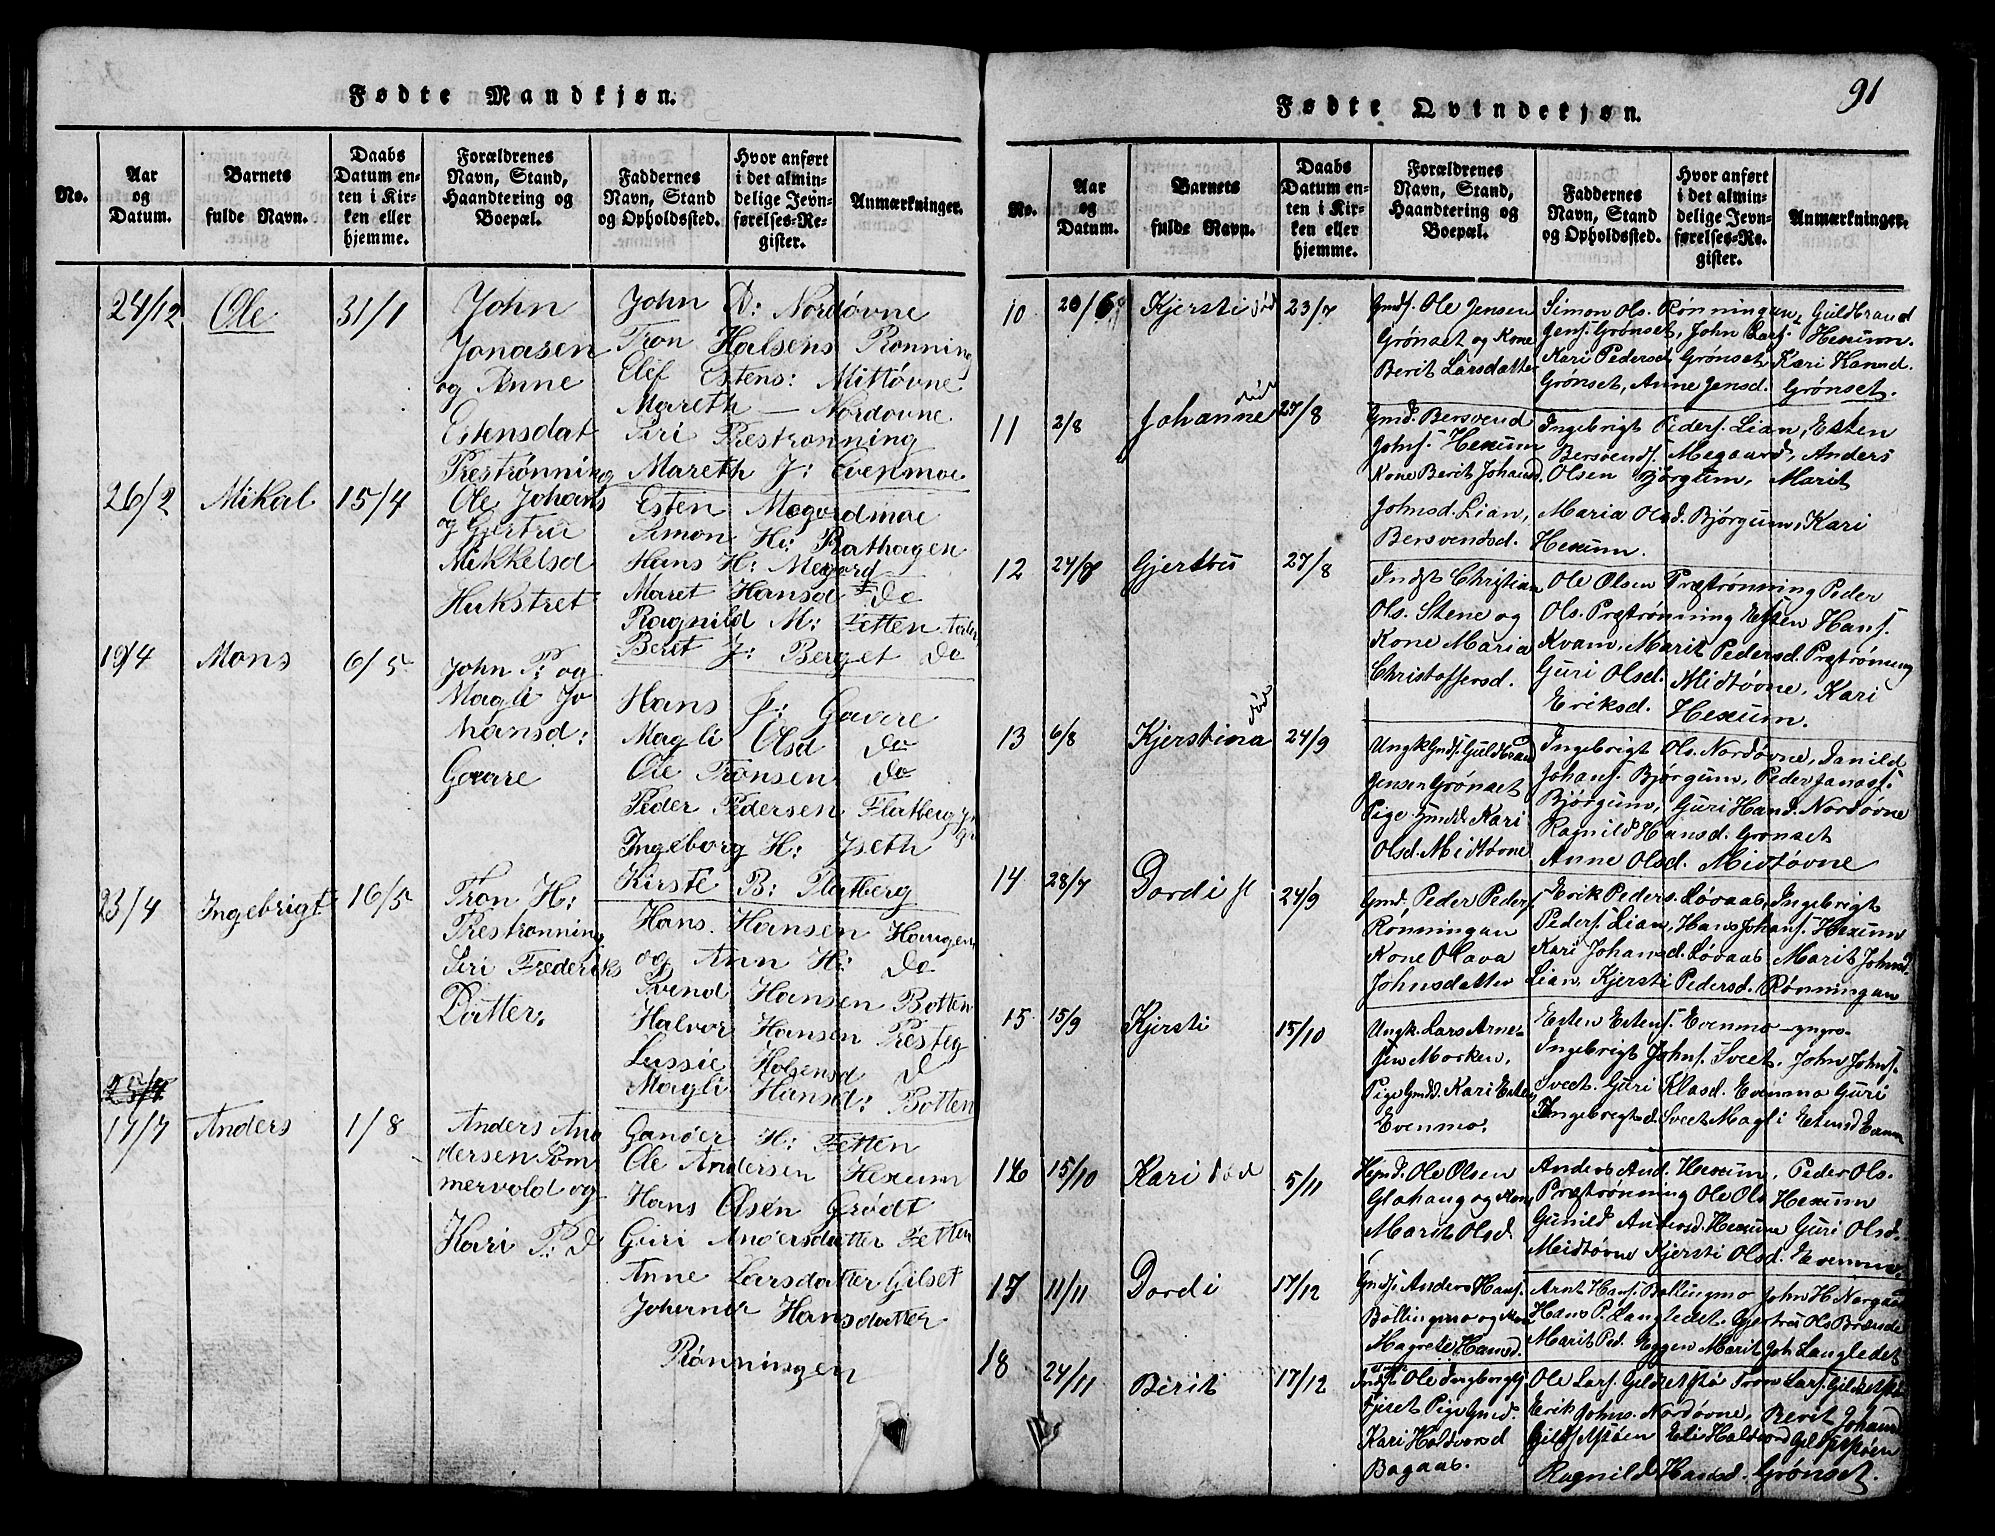 Fødte Mandkjøn.
No.
Aar og Datum.
Barnets fulde Navn.
Daabs Datum enten i Kirken eller hjemme.
Forældrenes Navn, Stand, Haandtering og Boepæl.
Faddernes Navn, Stand og Opholdssted.
Hvor anført i det almindelige Jevnførelses-Register.
Anmærkninger.
24/12 Ole 31/1
John
Jonasen
og Anne
Estensdat
Prestrønning
John D: Nordøvne
Tron Halsens Rønning
Elef Estens: Mittøvne
Mareth — Nordøvne
Siri Prestrønning
Mareth J: Evenmoe
26/2 Mikal 15/4
Ole Johans
og Gjertru
Mikkelsd
Hukstret
Esten Megordmoe
Simon H: Rathagen
Hans H: Megord
Maret Hansd Do
Ragnild M: Fetten
Beret J: Berget Do
19/4 Mons 6/5
John P: og
Magli Jo
hansd:
Gavare
Hans J: Gavare
Magli Olsd do
Ole Tronsen do
Peder Pedersen Flatberg
Ingeborg H: Iseth
Kirsti B: Flatberg
23/4 Ingebrigt 16/5
Tron H:
Prestrønning
Siri Frederiks
Datter.
Hans. Hansen Haugen
og Ann H: Do
Svend Hansen Botten
Halvor Hansen Presteg
Lussie Holsensd D
Magli Hansd: Botten
25/4
17/7 Anders 1/8
Anders An
dersen Som
mervold og
Kari P: D
Ganøer H: Fetten
Ole Andersen Hexum
Hans Olsen Grødt
Guri Andersdatter Fetten
Anne Larsdatter Gilset
Joherner Hansdatter
Rønningen
91
Fødte Qvindekjøn.
No.
Aar og Datum.
Barnets fulde Navn.
Daabs Datum enten i Kirken eller hjemme.
Forældrenes Navn, Stand, Haandtering og Boepæl.
Faddernes Navn, Stand og Opholdssted.
Hvor anført i det almindelige Jevnførelses-Re. gister.
Anmærkninger.
10 20/6 Kjersti død 23/7
Gmdf. Ole Jensen
Grønset og Kone
Berit Larsdatter
Simon Ols. Rønningan, Guldbrand
Jensf. Grønset, John Larsf. Hexum.
Kari Pedersd Grønset, Kari Hansd.
Grønset, Anne Jensd. Grønset.
11 2/8 Johanne død 27/8
Gmd. Bersvend
Johnsf. Hexum
Kone Berit Johansd.
Johnsd. Lian,
Bersvendsd.
Ingebrigt Pedersf. Lian, Esten
Bersvendsf. Megaard, Anders
Olsen Bjørgum, Marit
Maria Olsd. Bjørgum, Kari
Hexum.
12 24/7 Gjertru 27/8
Indst Christian
Ols. Stene og
Kone Maria
Christoffersd.
Ole Olsen Præstrønning Peder
Ols. Præstrønning Esten Hansf.
Kvam, Marit Pedersd. Præstrønning
Guri Olsd. Midtøvne, Kari
Eriksd. Hexum.
13 6/8 Kjerstina død 24/9
Ungk Gmdf. Guldbrand
Jensen Grønset
Pige Gmdd. Kari
Olsd. Midtøvne
Ingebrigt Ols. Nordøvne, Danild
Johansf. Bjørgum, Peder Janasf.
Bjørgum, Guri Hansd. Nordøvne
Ragnild Hansd. Grønset
Anne Olsd. Midtøvne
14 28/7 Dordi 24/9
Gmd. Peder Pedersf.
Rønningan
Kone Olava
Johnsdatter
Erik Peders. Løvaas, Ingebrigt
Pedersf. Lian, Hans Johansf. Hexum
Kari Johansd. Løvaas Marit Johnsd.
Lian, Kjersti Pedersd. Rønningan
15 15/9 Kjersti 15/10
Ungk. Lars Arne-
sen Morken,
Pige Gmdd. Kari Estensd
Evenmo.
Esten Estensf. Evenmo
Ingebrigt Johnsf. Sveet. John Johnsf.
Sveet. Guri Klasd. Evenmo Guri
Ingebrigtsd. Sveet Magli Estensd Evenm
16 15/10 Kari død 5/11
Hgmd. Ole Olsen
Glahaug og Kone
Marit Olsd.
Anders And. Hexum, Peder Ols.
Præstrønning Ole Ols Hexum
Gunild Andersd. Hexum Guri Olsd.
Midtøvne Kjersti Olsd. Evenmo.
17 11/11 Dordi 17/12
Gmdf. Anders Hansf.
Bollingmo og Kone
Magrete Hansd.
Arnt Hansf. Bollingmo John H Norgaa
Hans P. Langledet. Gjertru Ols Brænde
Marit Ped. Eggen Marit Joh Langledet
18 24/11 Berit 17/12
Indst Ole Ingebrigtf
Fjset Pige Gmd.
Kari Haldvorsd
Bagaas.
Ole Larsf. Gildsetstø Tron Larsf. Gildsetstø
Erik Johns. Nordøvne, Berit Johansd
Gildsetstøen Eli Haldvorsd Gildsetstøen
Ragnild Hansd. Grønset.